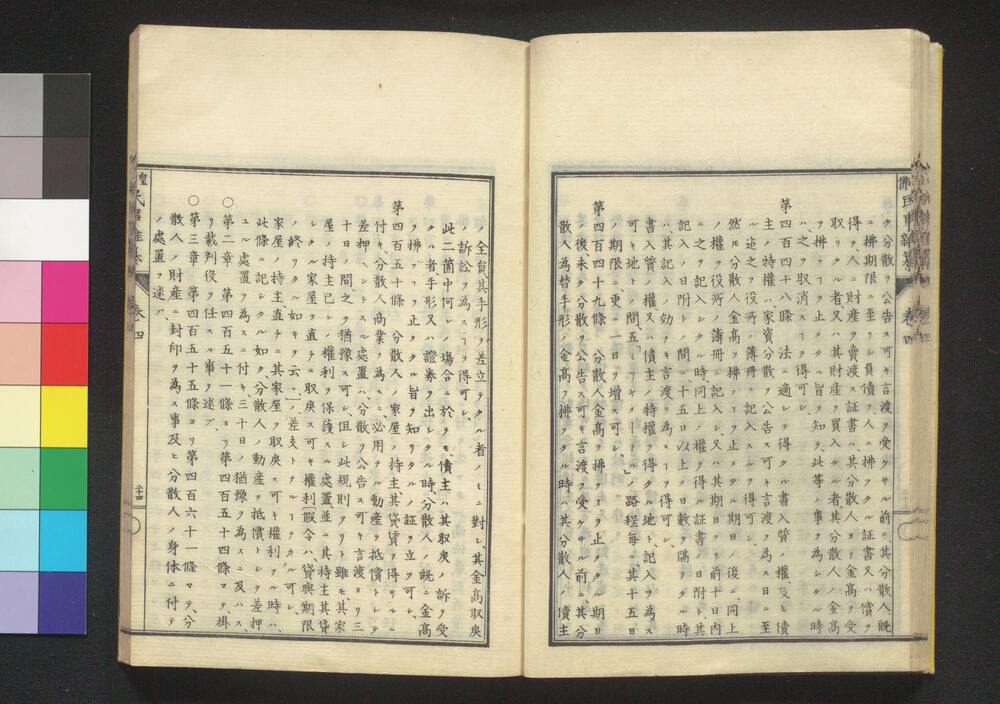 ク分散ヲ公告ス可キ言渡ヲ受ケサル前ニ其分散人既
ニ拂期限ニ至リシ負債、人ニ拂フタル証書又ハ償ヲ
得タ人ニ財産ヲ賣渡ス証書ハ其分散人ヨリ金高ヲ受
取リタル者又ハ其財産ヲ買入タル者、其分散人ノ金高
ヲ拂フヿヲ止メタル旨ヲ知テ、此等ノ事ヲ為シタル時
ハ、之ヲ取消スヿヲ得可シ、
第四百四十八條 法ニ適シテ得タル書入質ノ權、及ヒ債
主ノ特權ハ家資分散ヲ公告ス可キ言渡ヲ為ス日ニ至
ル迄之ヲ役所ノ簿冊ニ記入スルヿヲ得可シ、
然𪜈分散人金高ヲ拂フヿヲ止メタル期日ノ後ニ同上
ノ權ヲ役所ノ簿冊ニ記入シ、又ハ其期日ヨリ前十日内
ニ之ヲ記シタル時同上ノ權ヲ得ル証書ノ日附ト其
記入ノ日附トノ間ニ十五日以上ノ日數ヲ隔タル時
ハ、其記入ノ効ナキヲ言渡ヿヲ為スヿヲ得可シ、
書入質ノ權又ハ債主ノ特權ヲ得タル地ト記入ヲ為ス
可キ地トノ間、五「ミリヤメートル」ノ路程每ニ其十五日
ノ期限ニ、更ニ一日ヲ增ス可シ、
第四百四十九條 分散人金高ヲ拂フヿヲ止メタル期日
ノ後未タ分散ヲ公告ス可キ言渡ヲ受ケサル前ニ其分
散人為替手形ノ金高ヲ拂フタル時ハ其分散人ノ債主
卷四
ノ全員其手形ヲ差立テタル者ノミニ對シ、其金高取戾
ノ訴訟ヲ為スヿヲ得可シ、
此二箇中何レノ塲合ニ於テモ、債主ハ其取戾ノ訴ヲ受
クル者手形又ハ證券ヲ出シタル時、分散人ノ既ニ金高
ヲ拂フヿヲ止メタル旨ヲ知リタルノ証ヲ立ツ可シ、
第四百五十條 分散人ノ家屋ノ持主其貸賃ヲ得ルニ
付キ、分散人商業ヲ為スニ必用ナル動産ヲ抵償トシテ
差押ヘントスル處置ハ、分散ヲ公告ス可キ言渡ヨリ三
十日ノ間之ヲ猶豫ス可シ、但シ此規則アリト雖モ其家
屋ノ持主已レノ權利ヲ保護スル處置並ニ其持主其貸
シタル家屋ヲ直チニ取戾ス可キ權利(假令ハ貸與期限
ノ終リタル如キヲ云、)ノ差支トナルヿナカル可シ、
家屋ノ持主、直チニ其家屋ヲ取戾ス可キ權利アル時ハ、
此條ニ記シタル如ク、分散人ノ動産ヲ抵償トシテ差押
ユル處置ヲ為スニ付キ、三十日ノ猶豫ヲ為スニ及ハス、
○第二章 第四百五十一條ヨリ第四百五十四條マテ、掛
リ裁判役ヲ任スル事ヲ述フ、
○第三章 第四百五十五條ヨリ第四百六十一條マテ、分
散人ノ財産ニ封印ヲ為ス事及ヒ分散人ノ身体ニ付テ
ノ處置ヲ述フ、
卷四
二十四